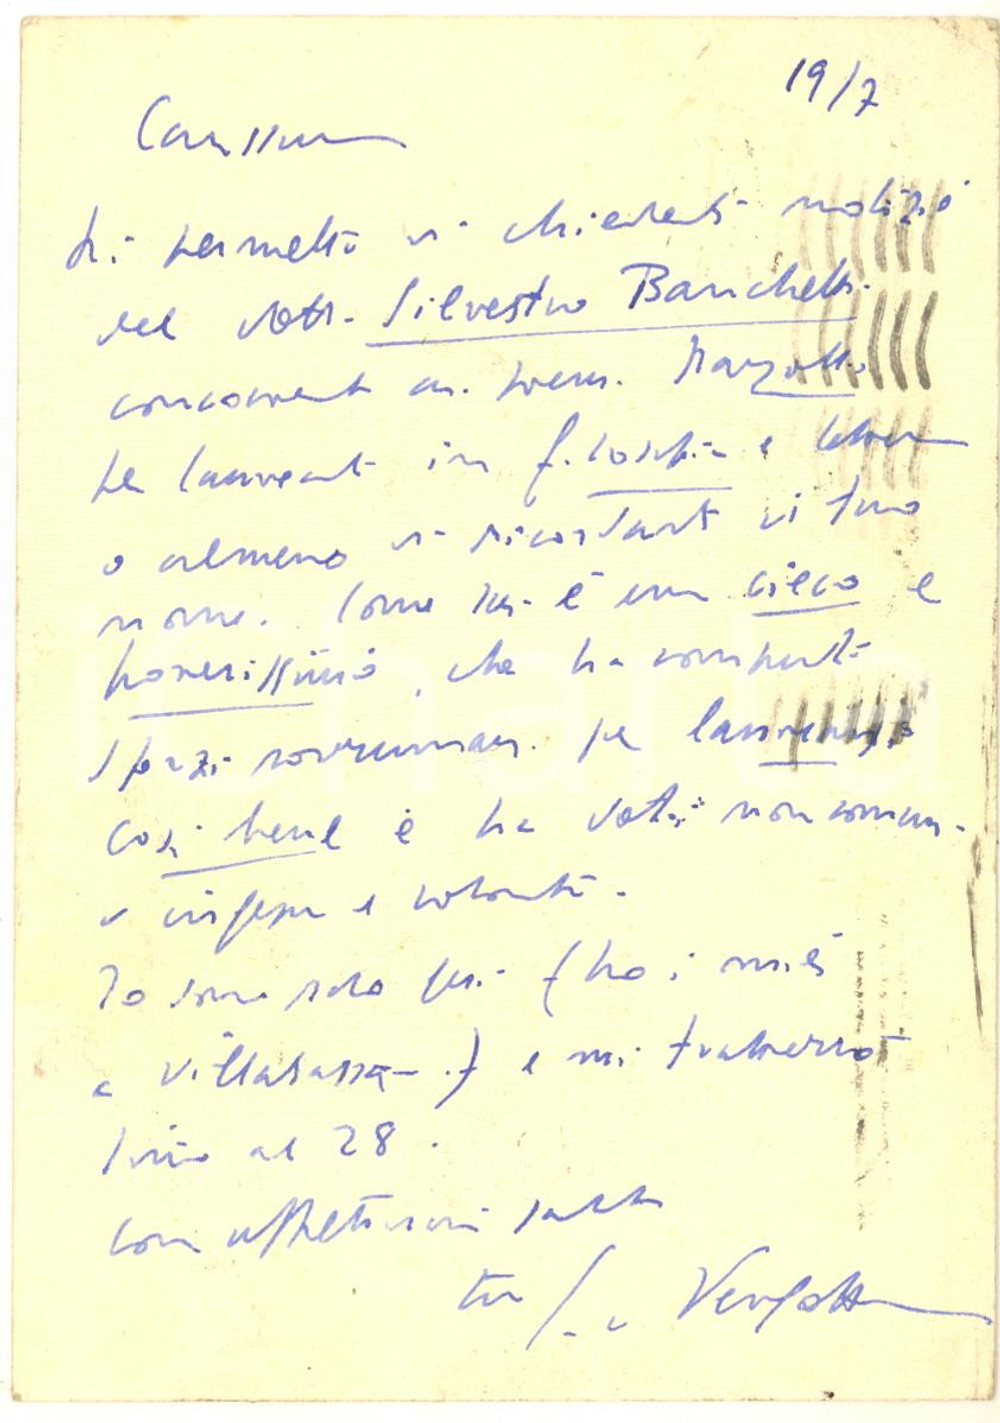 19/7
Carissimo
Mi permetto di chiederti notizie
del dott. Silvestro Banchetti
concorrente al prem. Marzotto
per laureati in filosofia e lettere
o almeno di ricordarti il suo
nome. Come sai è un cieco e
poverissimo, che ha compiuto
sforzi sovrumani per laurearsi
così bene e ha doti non comuni
d'ingegno e volontà.
Io sono solo qui (ho i miei
a Villabassa) e mi tratterrò
fino al 28.
con affettuosi saluti
tuo